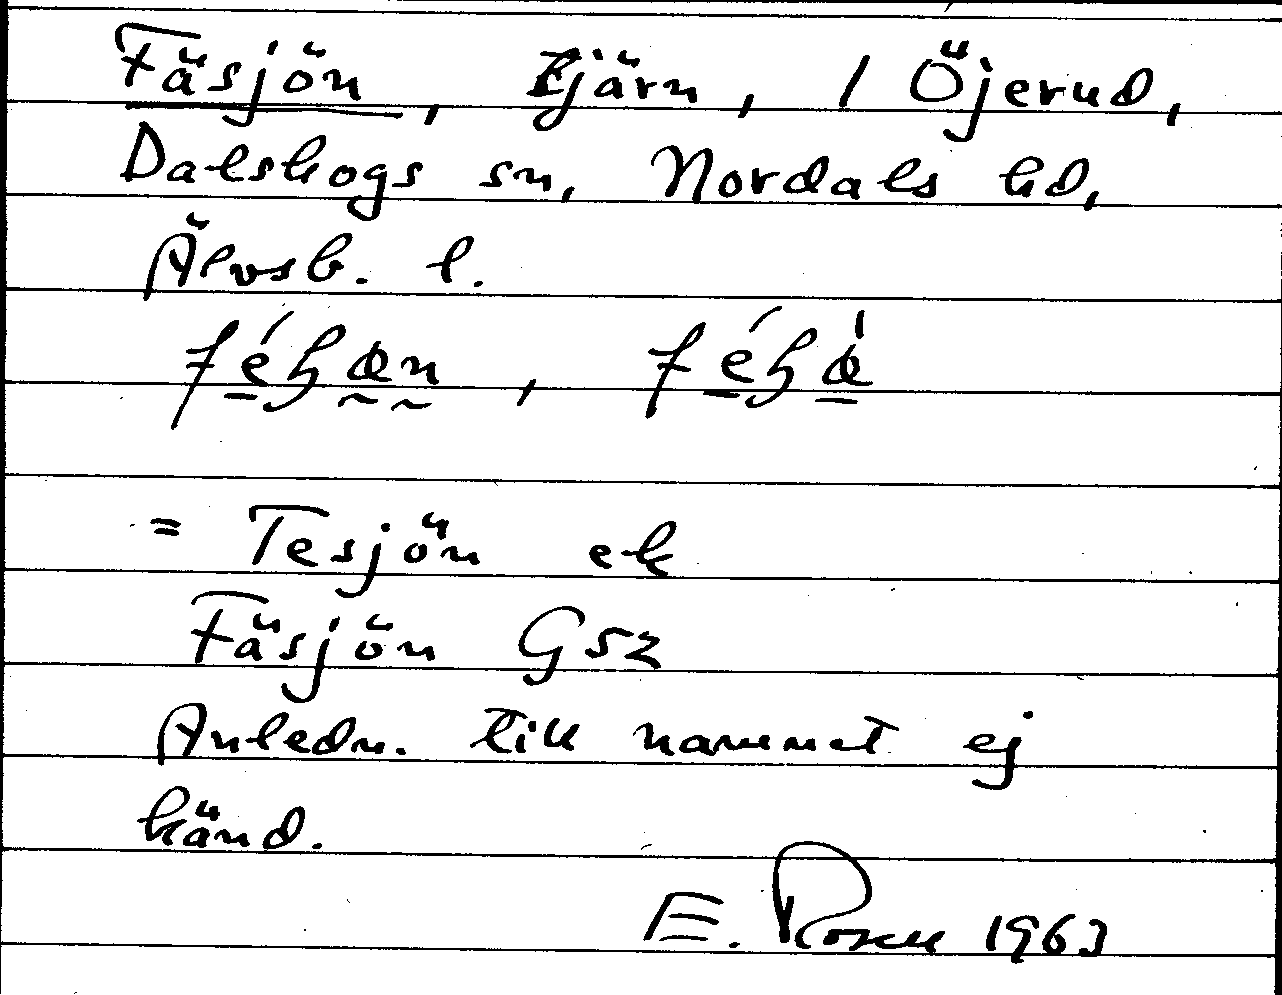 Fäsjön, tjärn, 1 Öjerud,
Dalskogs sn, Nordals hd,
Älvsb. l.
= Tesjön ek
Fäsjön GSZ
Anledn. till namnet ej
känd.
E. Rosell 1963